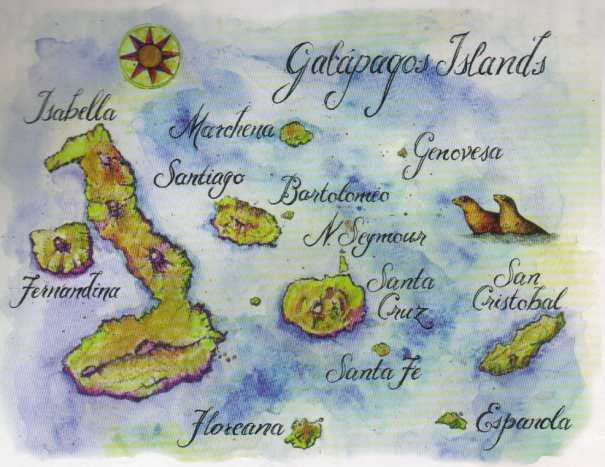 Galápagos Islands
Isabella
Marchena
Genovesa
Santiago
Bartolomeo
N. Seymour
Fernandina
Santa
Cruz
San
Cristobal
Santa Fe
Floreana
Espanola